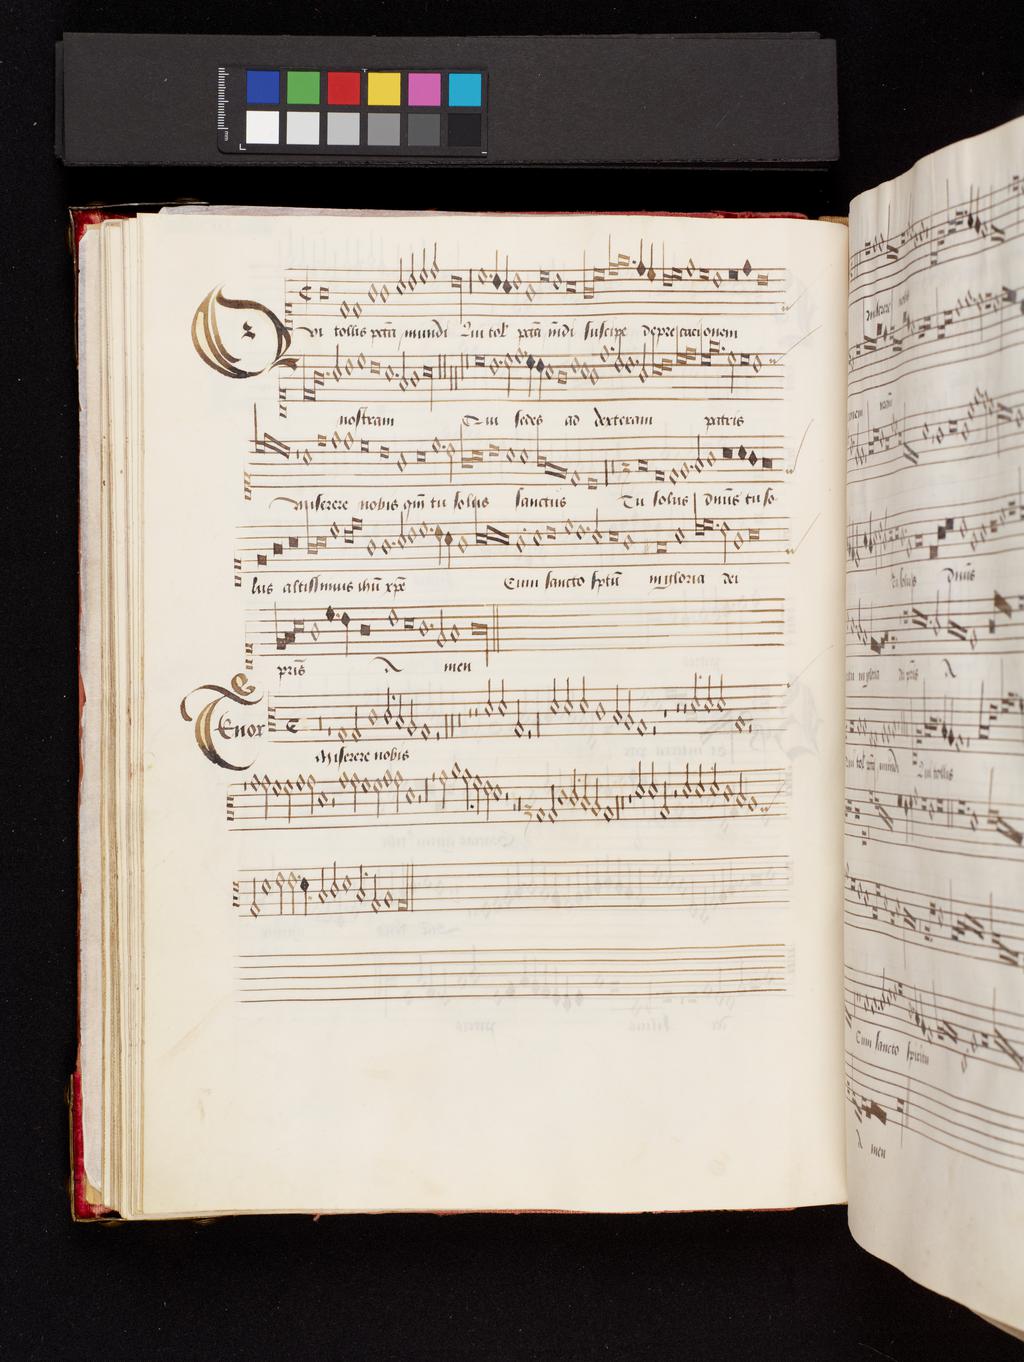 Qui tollis pctā mundi Qui tol' pctā mūdi suscipe deprecacionem
nostram Qui sedes ad dexteram patris
Miserere nobis qm̄ tu solus sanctus Tu solus dn̄us tu so-
lus altissimus ihū xp̄e Cum sancto sp̄tū in gloria dei
pr̄is A men
Tenor
Miserere nobis
Miserere nobis
Tu solus dn̄us
A
Cum sancto spiritu
A men